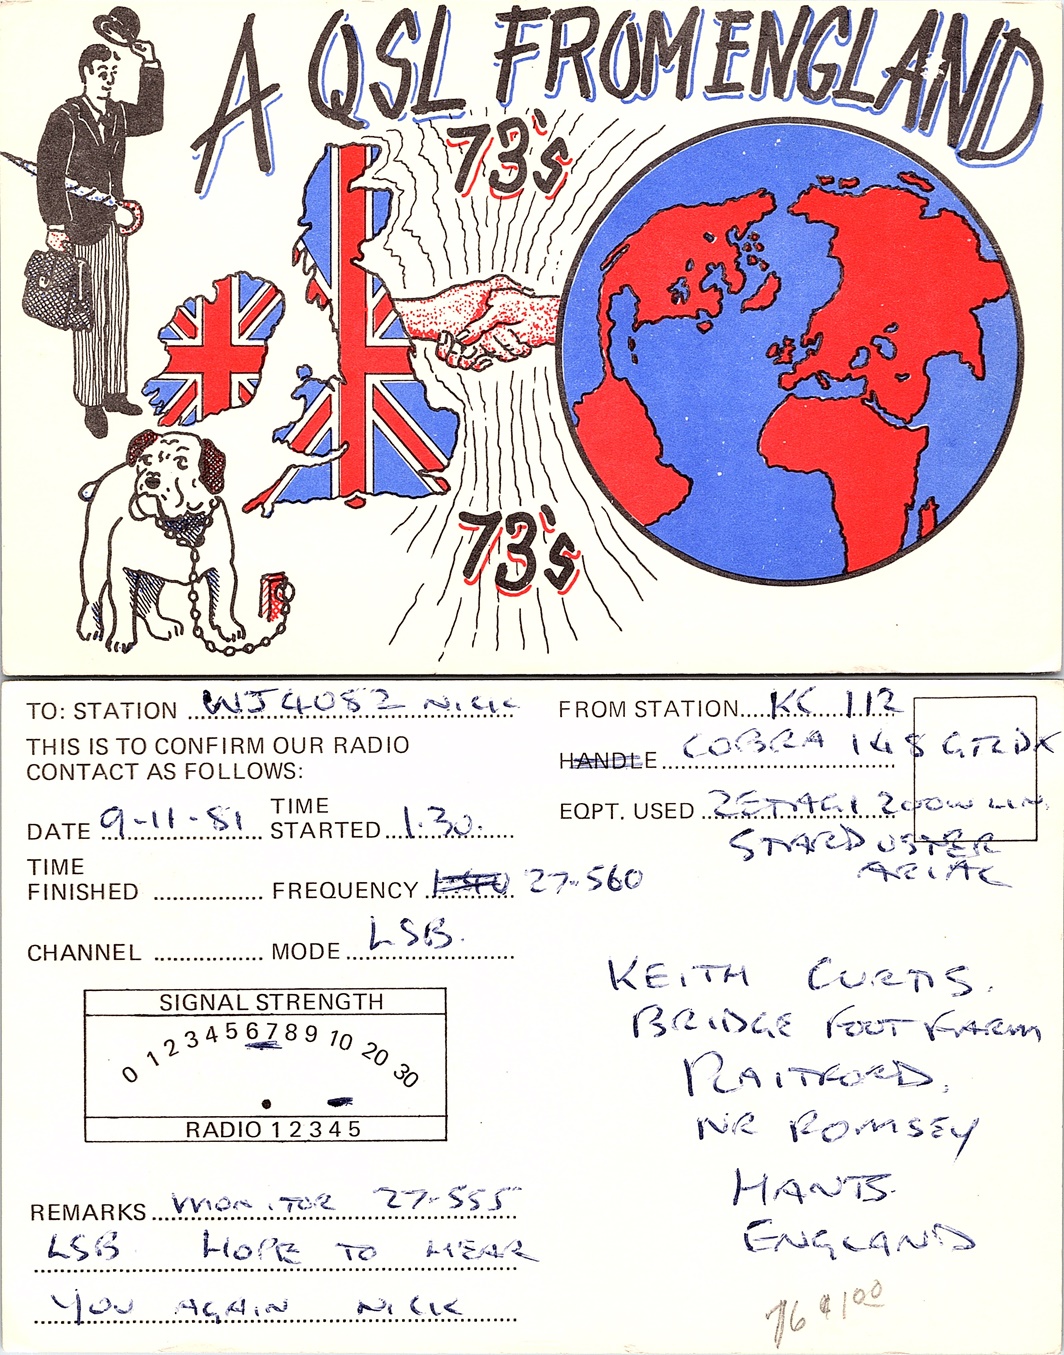 A QSL FROM ENGLAND
73's
73's
TO: STATION WJ4082 NICK
FROM STATION KC 112
THIS IS TO CONFIRM OUR RADIO
CONTACT AS FOLLOWS:
HANDLE COBRA 148 GTLDX
DATE 9-11-81 TIME STARTED 1.30.
EQPT. USED ZETAGI 200W LIN
STARDUSTER
ARIAL
TIME
FINISHED FREQUENCY 27-560
CHANNEL MODE LSB.
SIGNAL STRENGTH
0 1 2 3 4 5 6 7 8 9 10 20 30
RADIO 1 2 3 4 5
KEITH CURTIS.
BRIDGE FOOT FARM
PLAITFORD,
NR ROMSEY
HANTS.
ENGLAND
REMARKS MONITOR 27-555
LSB HOPE TO HEAR
YOU AGAIN NICK